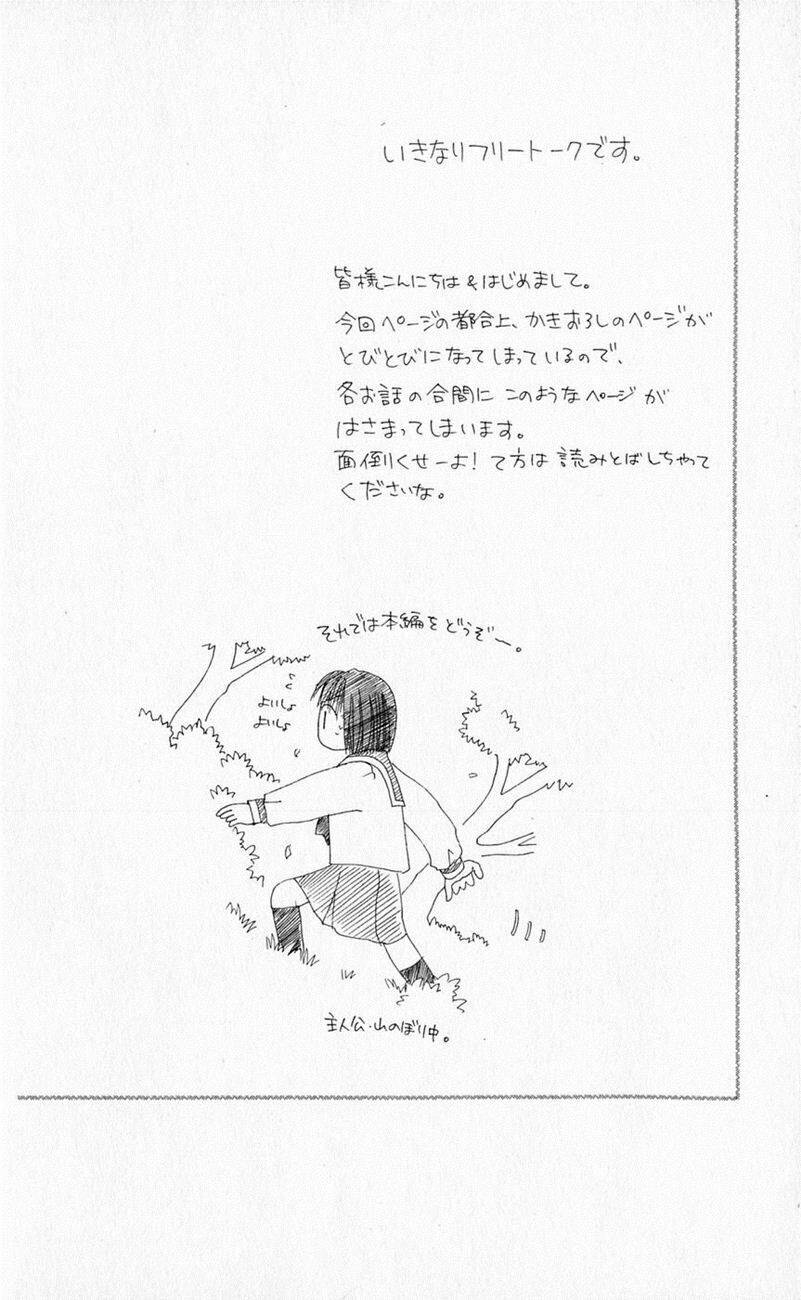 いきなりフリートークです。
皆様こんにちは&はじめまして。
今回ページの都合上、かきおろしのページが
とびとびになってしまっているので、
各お話の合間に このようなページが
はさまってしまいます。
面倒くせーよ! て方は 読みとばしちゃって
くださいな。
それでは本編をどうぞー。
よいしょ
よいしょ
主人公・山のぼり中。